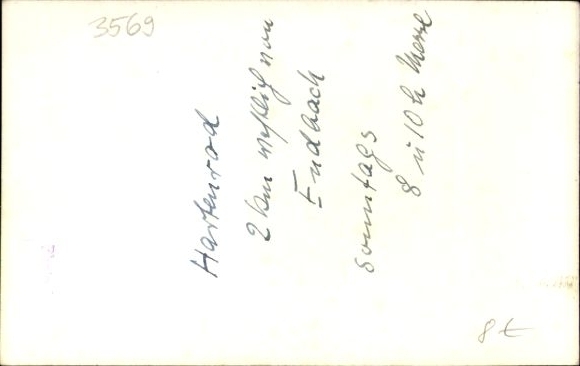 3569
Hartenrod
2 km westlich von
Endbach
Sonntags
8 u 10 h Messe
8 t